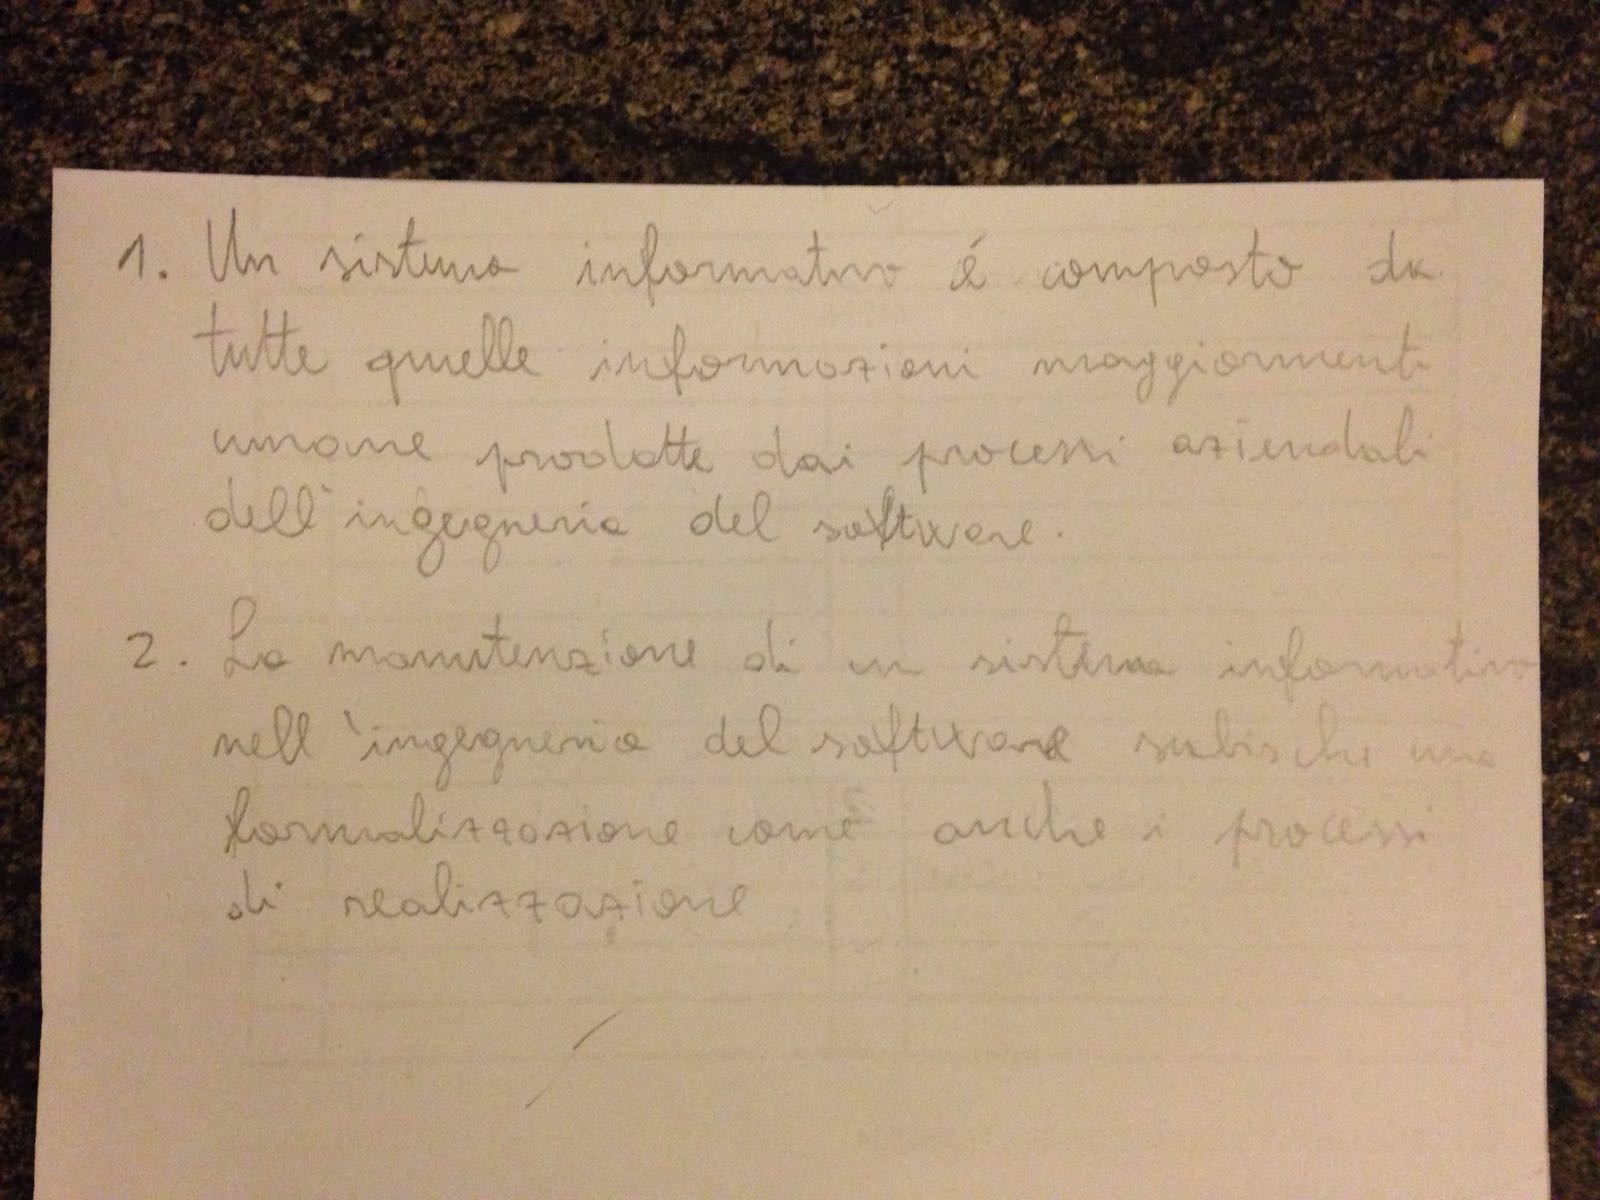 1. Un sistema informativo é composto da
tutte quelle informazioni maggiormente
umane prodotte dai processi aziendali
dell'ingegneria del software.
2. La manutenzione di un sistema informativo
nell'ingegneria del software subische una
formalizzazione come anche i processi
di realizzazione